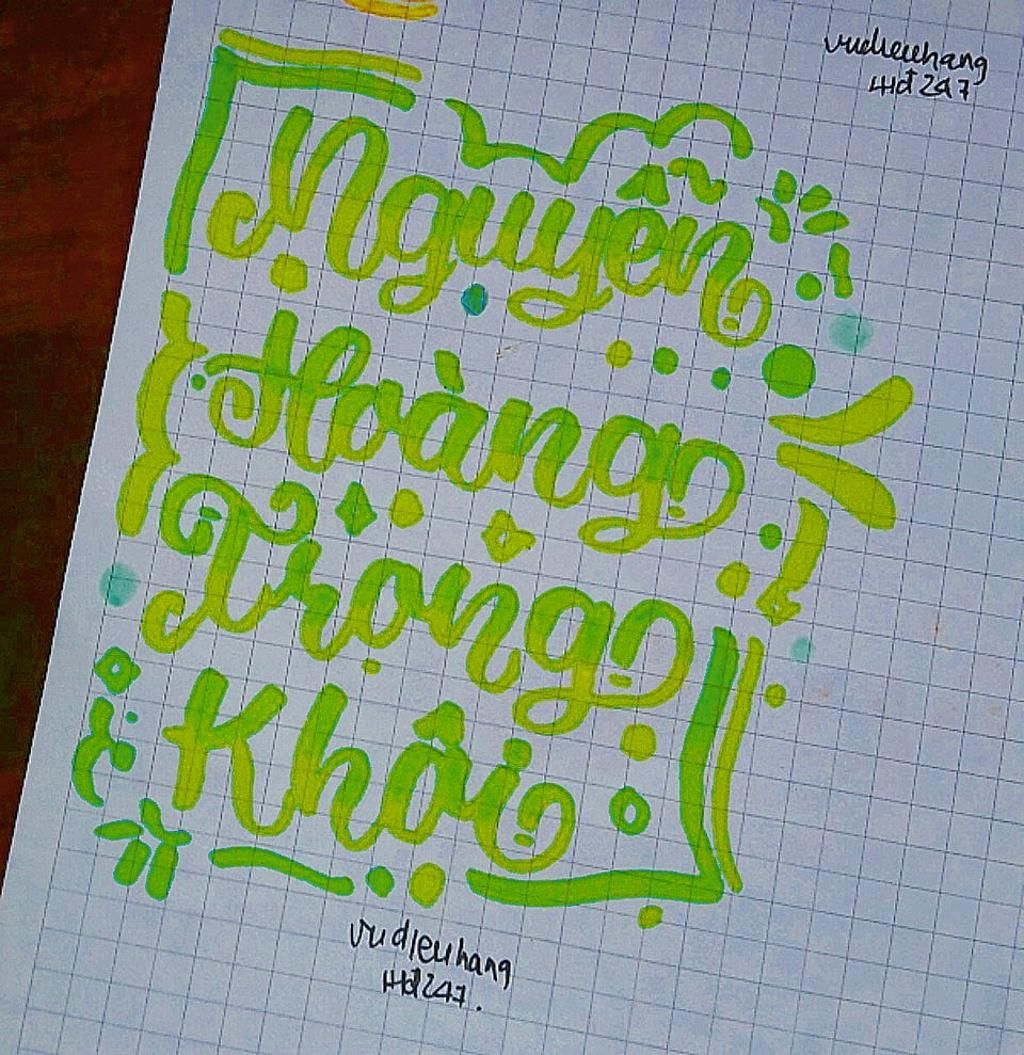 vudieuhang
HĐ247
Nguyễn
Hoàng
Trọng
Khôi
vudieuhang
HĐ247.